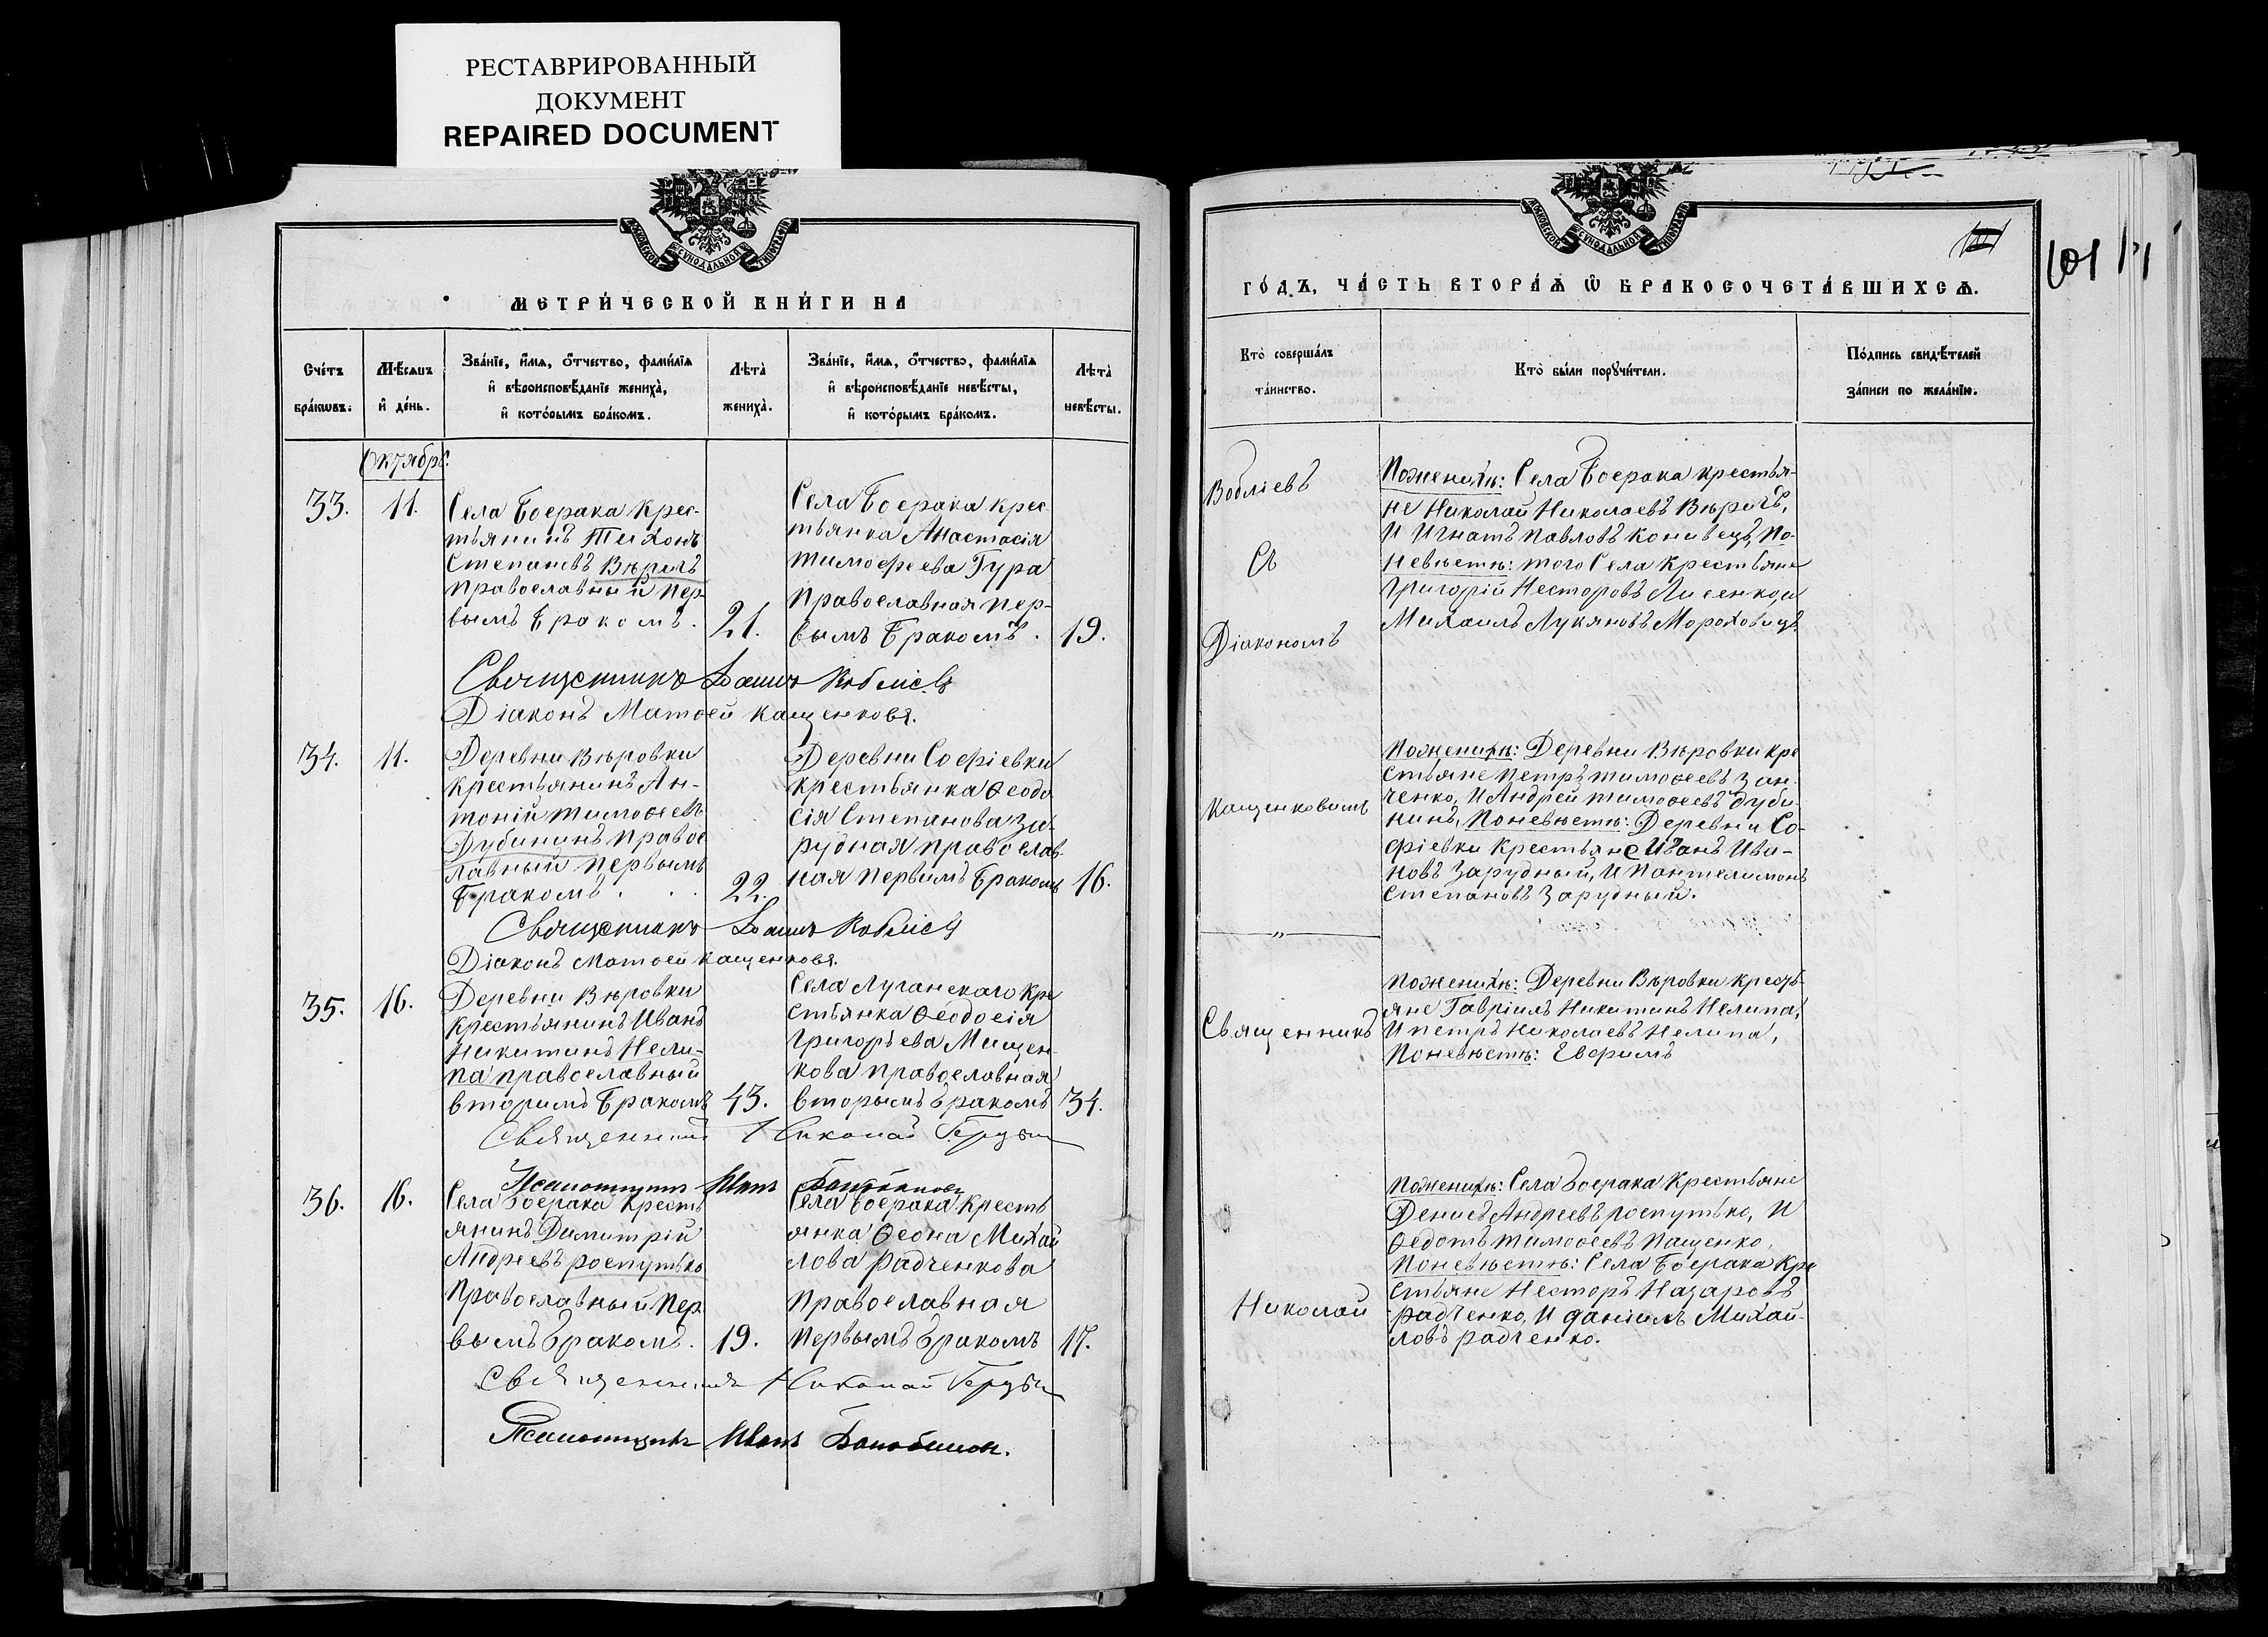 РЕСТАВРИРОВАННЫЙ
ДОКУМЕНТ
REPAIRED DOCUMENT
МОСКОВСКОЙ СУНОДАЛЬНОЙ ТИПОГРАФІИ
МЕТРИ́ЧЕСКОЙ КНИ́ГИ НА
Сче́тъ бра́кѡвъ.
Мѣ́сяцъ и҆ де́нь.
Зва́нїе, и҆́мѧ, ѻ҆́тчество, фами́лїѧ
и҆ вѣроисповѣ́данїе жениха̀,
и҆ кото́рымъ бра́комъ.
Лѣта̀ жениха̀.
Зва́нїе, и҆́мѧ, ѻ҆́тчество, фами́лїѧ
и҆ вѣроисповѣ́данїе невѣ́сты,
и҆ кото́рымъ бра́комъ.
Лѣта̀ невѣ́сты.
Октябрь.
33.
11.
Села Боерака крес-
тьянинъ Тихонъ
Степановъ Вѣричъ
православный пер-
вымъ бракомъ.
21.
Села Боерака крес-
тьянка Анастасія
Тимофеева Гура
православная пер-
вымъ бракомъ.
19.
Священникъ Іоаннъ Воблiевъ
Діаконъ Матѳей Кащенковъ.
34.
11.
Деревни Вѣровки
крестьянинъ Ан-
тоній Тимоѳеевъ
Дубининъ правос
лавный первымъ
бракомъ.
22.
Деревни Софіевки
крестьянка Ѳеодо
сія Степанова За-
рудная православ-
ная первымъ бракомъ
16.
Священникъ Іоаннъ Воблiевъ
Діаконъ Матѳей Кащенковъ.
35.
16.
Деревни Вѣровки
крестьянинъ Иванъ
Никитинъ Нели-
па православный
вторымъ бракомъ
43.
Села Луганскаго кре
стьянка Ѳеодосія
Григорьева Мищен-
кова православная
вторымъ бракомъ
34.
Священникъ Николай
Псаломщикъ Иванъ
36.
16.
Села Боерака кресть
янинъ Димитрій
Андреевъ Роспутько
православный пер
вымъ бракомъ.
19.
Села Боерака кресть
янка Ѳеона Михай
лова Радченкова
православная
первымъ бракомъ
17.
Священникъ Николай
Псаломщикъ Иванъ
МОСКОВСКОЙ СУНОДАЛЬНОЙ ТИПОГРАФІИ
101
ГО́ДЪ, ЧА́СТЬ ВТОРА́Ѧ Ѽ БРАКОСОЧЕТА́ВШИХСѦ.
Кто̀ соверша́лъ
та́инство.
Кто̀ бы́ли порꙋчи́тели.
По́дпись свидѣ́телей
за́писи по жела́нїю.
Воблiевъ
Съ
Діакономъ
Кащенковымъ
Священникъ
Николай
По женихѣ: Села Боерака крестья-
не Николай Николаевъ Вѣричъ,
и Игнатъ Павловъ Конивецъ, По
невѣстѣ: того Села крестьяне
Григорій Несторовъ Лисенко, и
Михаилъ Лукяновъ Мороховецъ
По женихѣ: Деревни Вѣровки кре
стьяне Петръ Тимоѳеевъ Зан-
ченко, и Андрей Тимоѳеевъ Дуби-
нинъ, По невѣстѣ: Деревни Со-
фіевки крестьяне Иванъ Ива-
новъ Зарудный, и Пантелимонъ
Степановъ Зарудный.
По женихѣ: Деревни Вѣровки кресть-
яне Гавріилъ Никитинъ Нелипа,
и Петръ Николаевъ Нелипа,
По невѣстѣ: Евфимъ
По женихѣ: Села Боерака крестьяне
Денисъ Андреевъ Роспутько, и
Ѳедотъ Тимоѳеевъ Пащенко,
По невѣстѣ: Села Боерака кре
стьяне Несторъ Назаровъ
Радченко, и Даніилъ Михай-
ловъ Радченко.